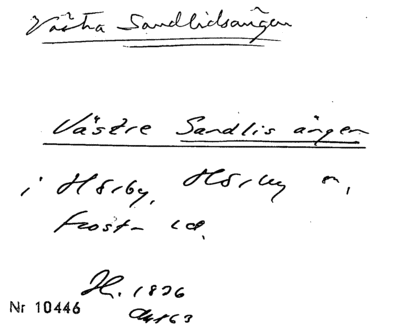 Västra Sandlidsängen
Västre Sandlis ängen
i Hörby, Hörby s,
Frosta hd.
H. 1826
akt 63
Nr 10446